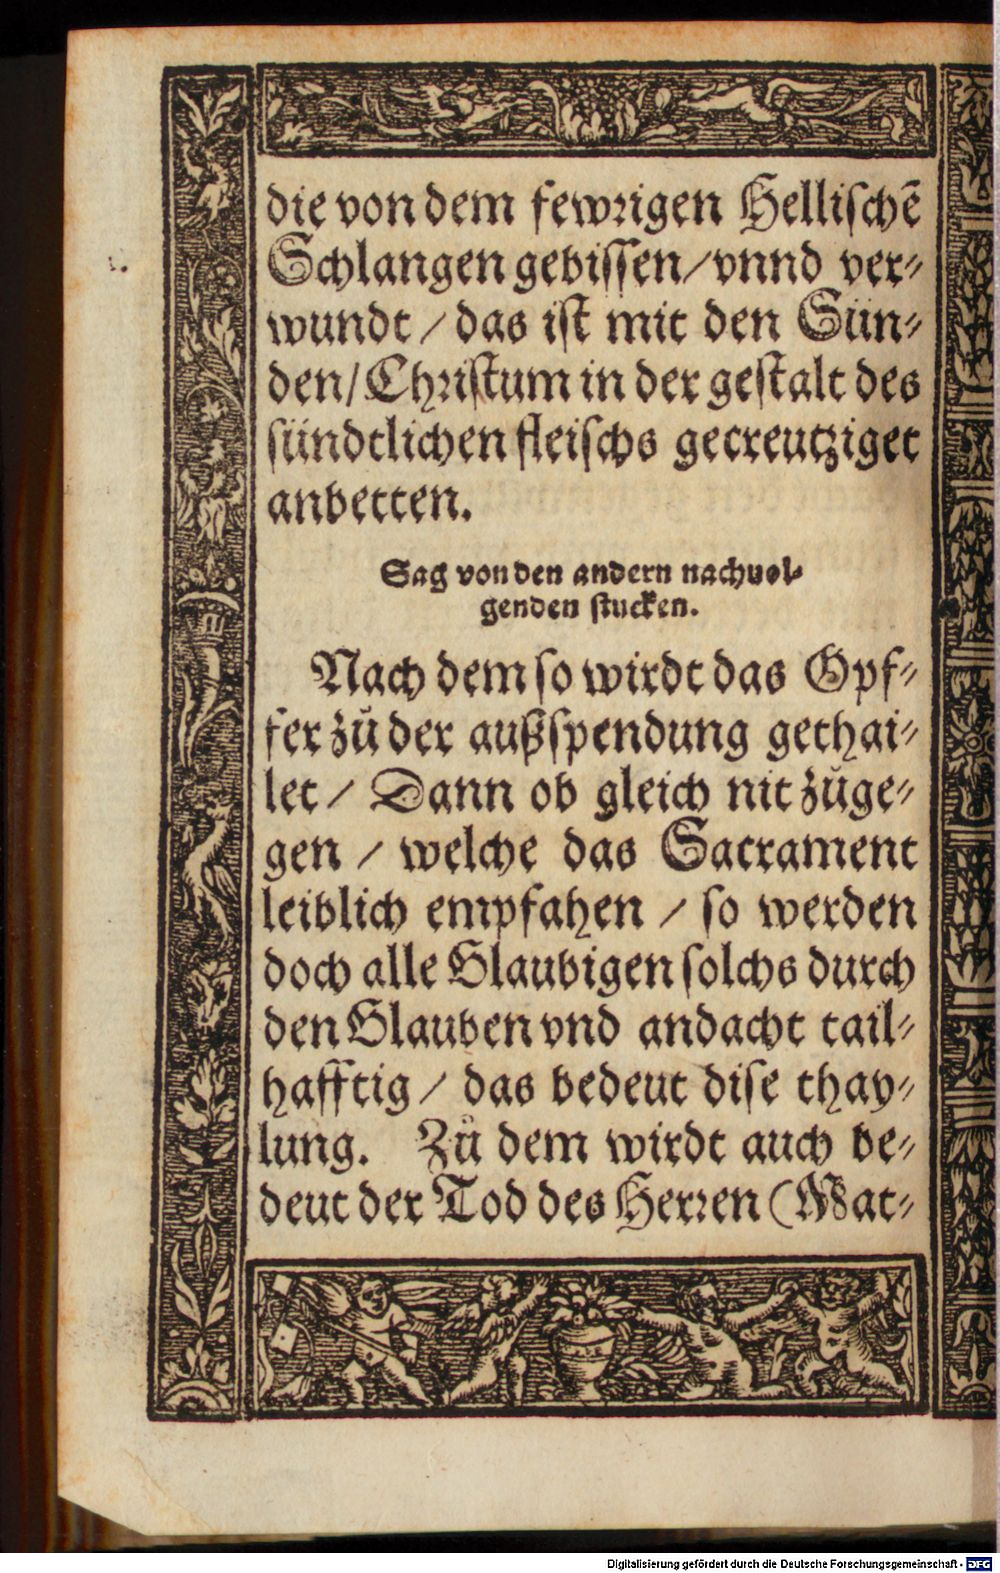 die von dem fewrigen Hellischē
Schlangen gebissen/vnnd ver-
wundt / das ist mit den Sün-
den/Christum in der gestalt des
sündtlichen fleischs gecreutziget
anbetten.
Sag von den andern nachuol-
genden stucken.
Nach dem so wirdt das Opf-
fer zů der außspendung gethai-
let / Dann ob gleich nit zůge-
gen / welche das Sacrament
leiblich empfahen / so werden
doch alle Glaubigen solchs durch
den Glauben vnd andacht tail-
hafftig / das bedeut dise thay-
lung. Zů dem wirdt auch be-
deut der Tod des Herren (Mat-
Digitalisierung gefördert durch die Deutsche Forschungsgemeinschaft - DFG